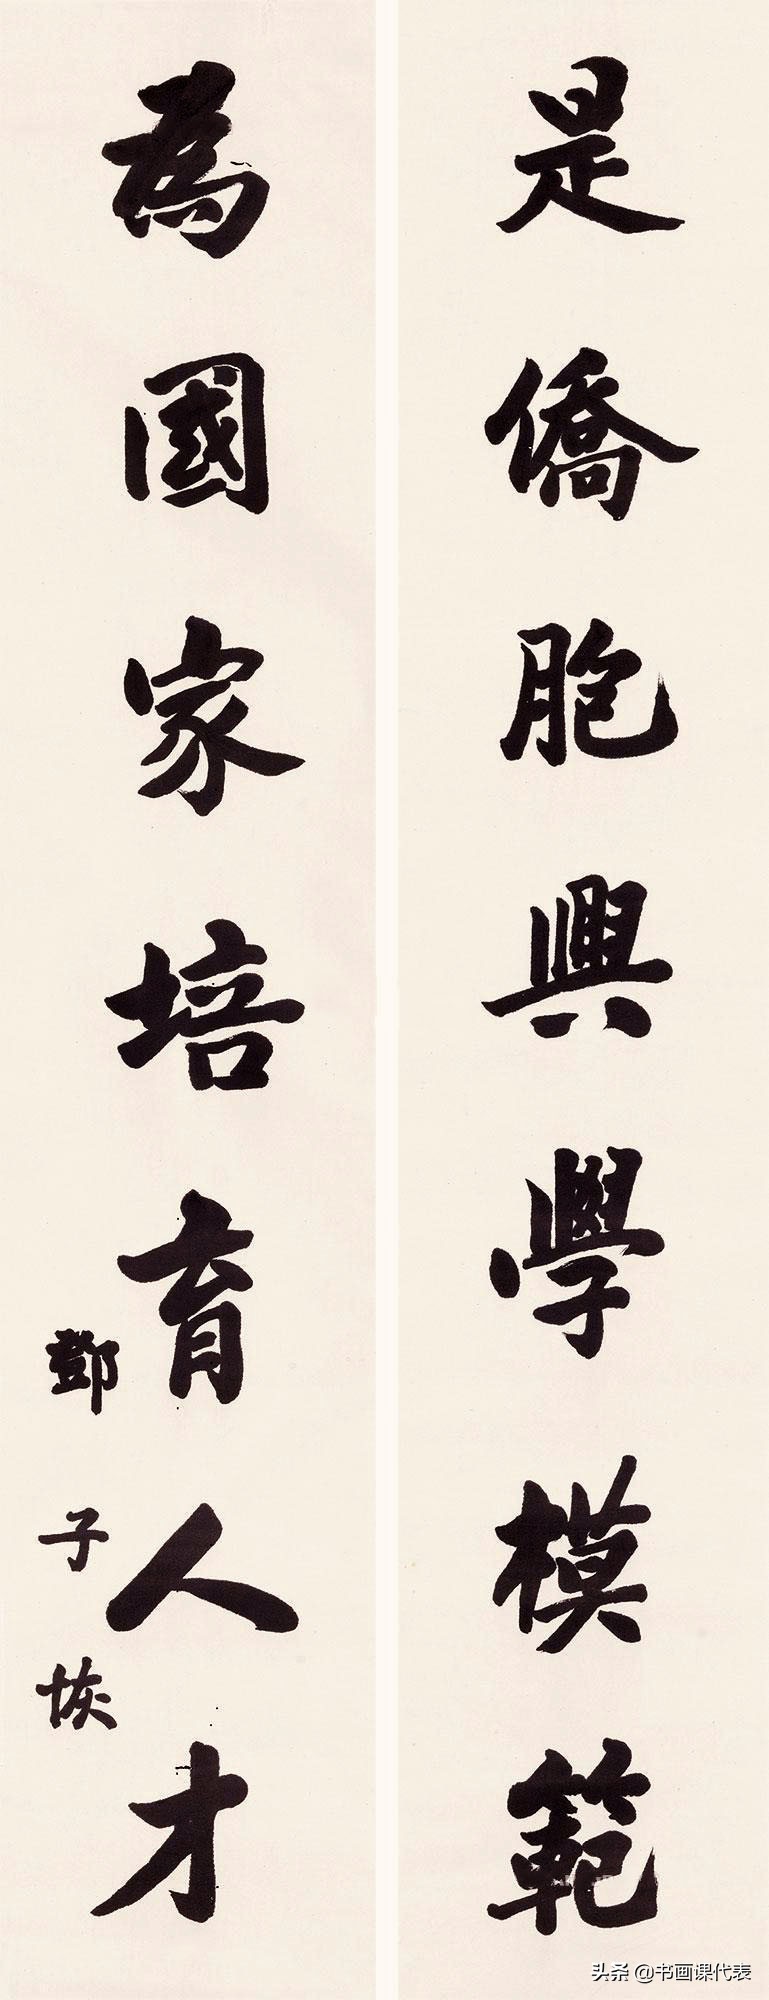 是僑胞興學模範
為國家培育人才
鄧子恢
头条 @书画课代表